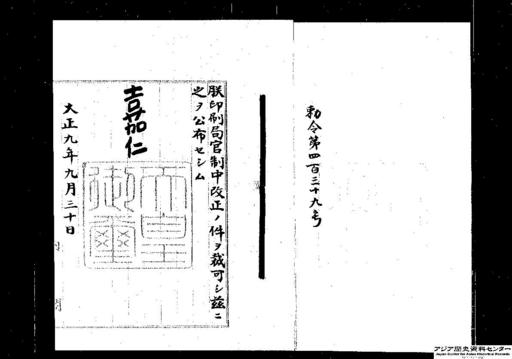 勅令第四百三十九号
朕印刷局官制中改正ノ件ヲ裁可シ茲ニ
之ヲ公布セシム
嘉仁
天皇御璽
大正九年九月三十日
アジア歴史資料センター
Japan Center for Asian Historical Records